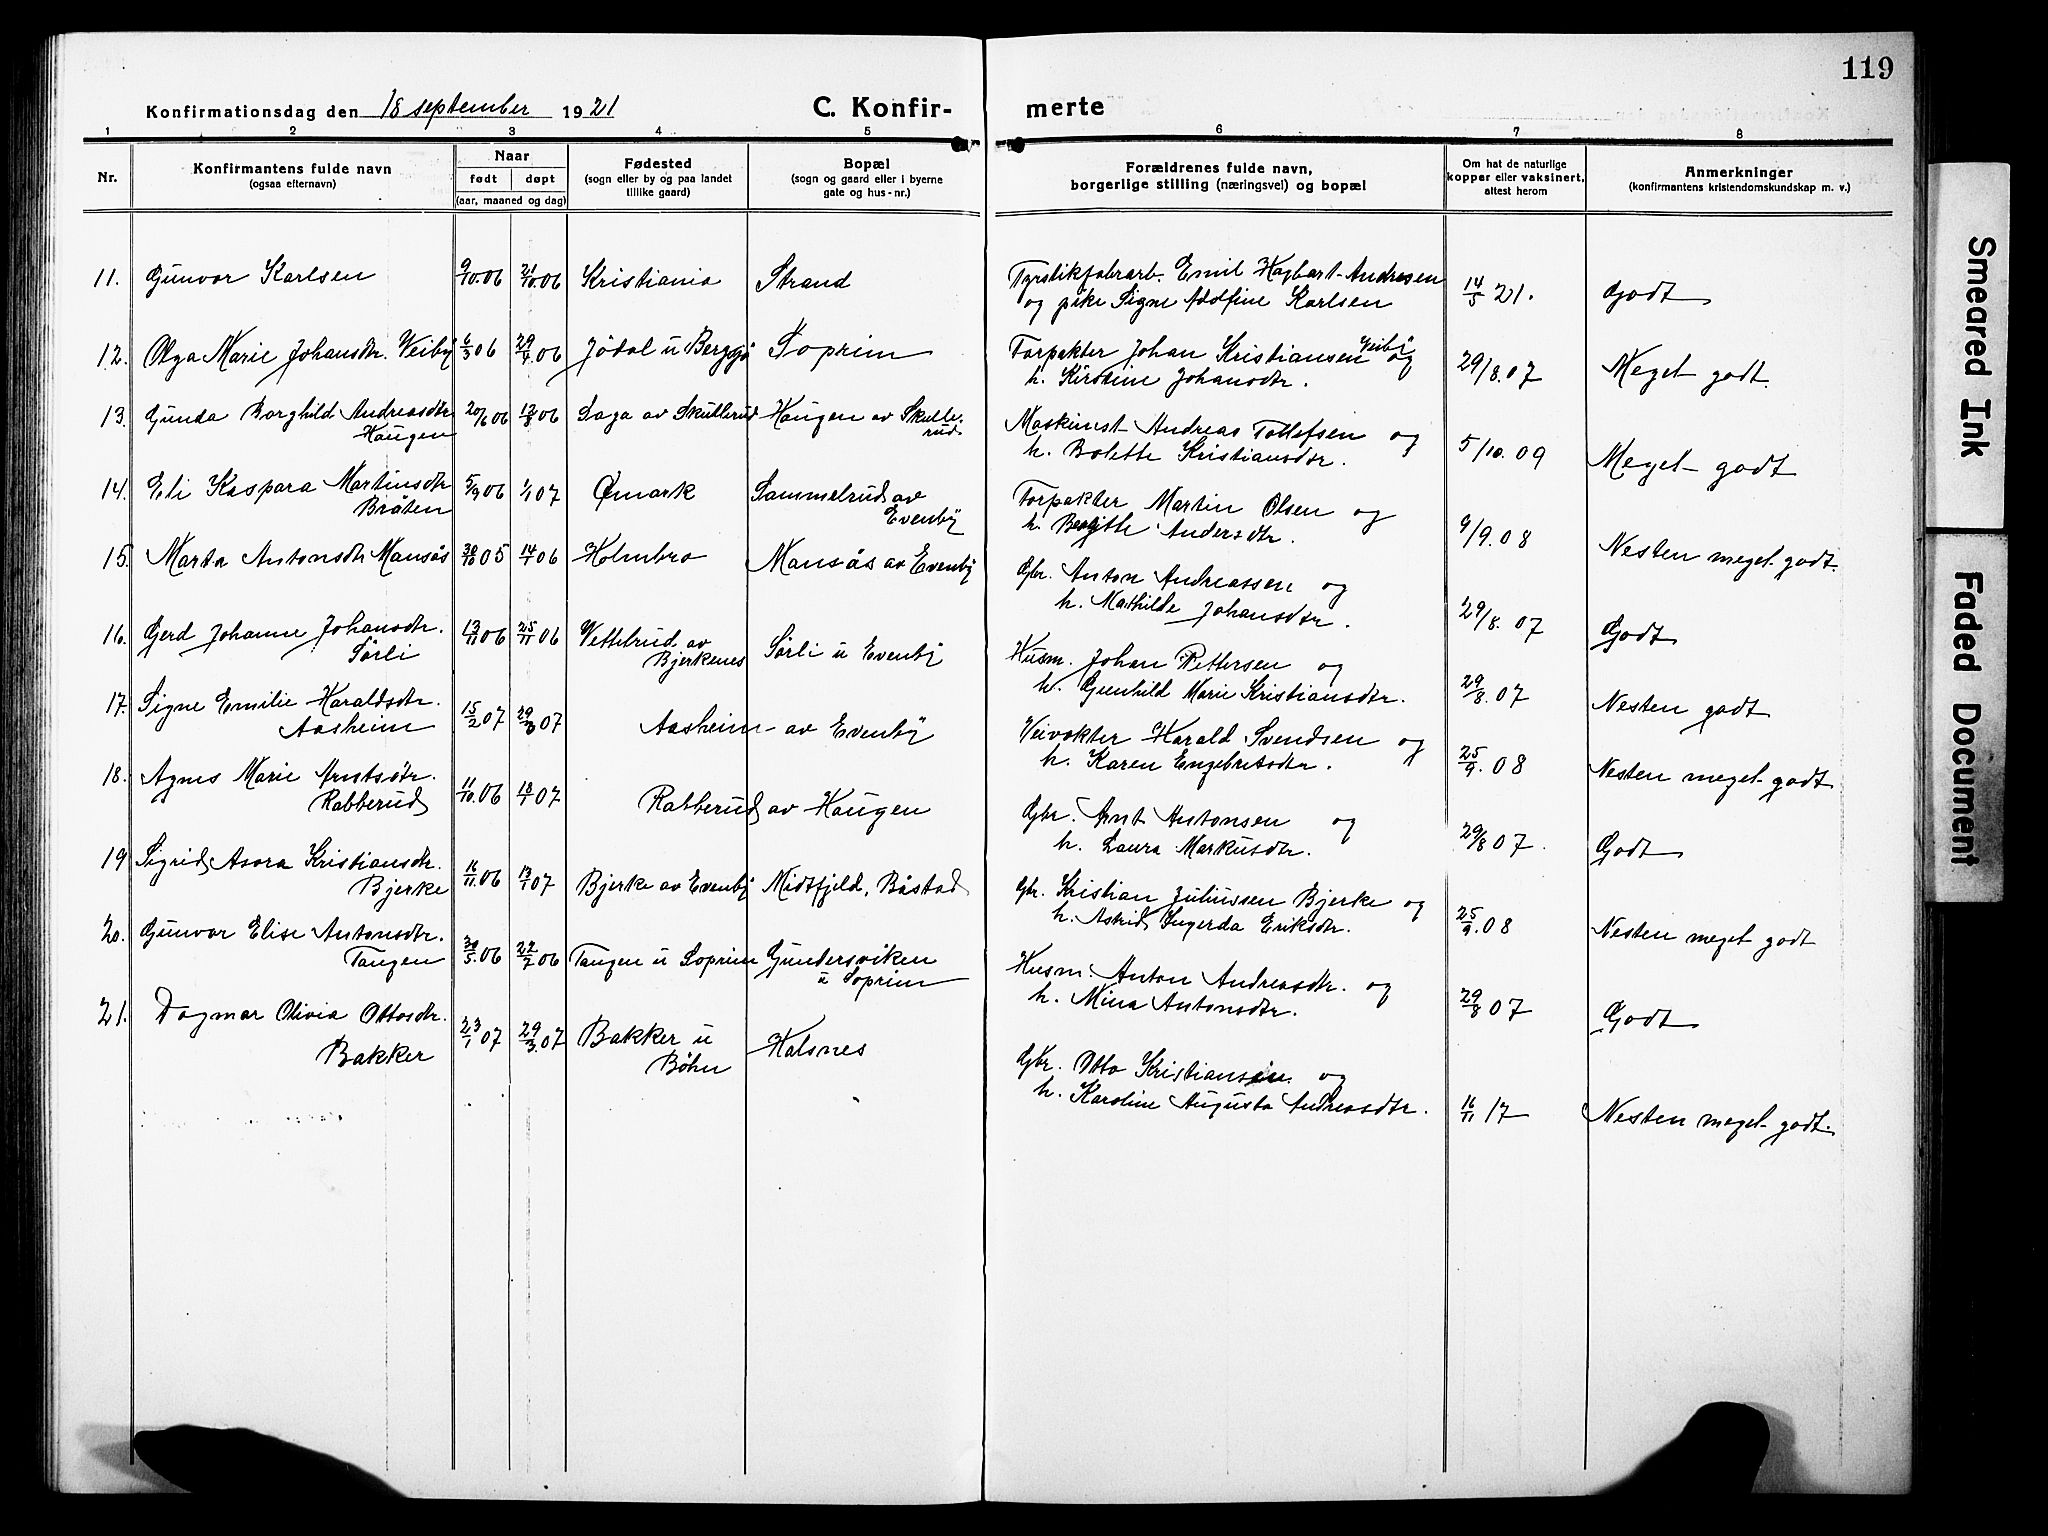 119
Konfirmationsdag den 18 september 1921 C. Konfir- merte
1 2 3 4 5 6 7 8
Nr.
Konfirmantens fulde navn
(ogsaa efternavn)
Naar
født døpt
(aar, maaned og dag)
Fødested
(sogn eller by og paa landet
tillike gaard)
Bopæl
(sogn og gaard eller i byerne
gate og hus-nr.)
Forældrenes fulde navn,
borgerlige stilling (næringsvei) og bopæl
Om hat de naturlige
kopper eller vaksinert,
attest herom
Anmerkninger
(konfirmantens kristendomskundskap m. v.)
11. Gunvor Karlsen 9/10.06 21/10.06 Kristiania Strand
Fyrstikfabrarb. Emil Hagbart Andresen
og pike Signe Adolfine Karlsen
14/5 21. Godt
12. Olga Marie Johansdtr. Veiby 6/3 06 29/4.06 Jødal u Bergsjø Soprim
Forpakter Johan Kristiansen Veiby og
h. Kirstine Johansdtr.
29/8.07 Meget godt.
13. Gunda Borghild Andreasdtr
Haugen
20/6 06 12/8 06 Saga av Skullerud Haugen av Skulle-
rud.
Maskinist Andreas Tollefsen og
h. Bolette Kristiansdtr.
5/10.09 Meget godt
14. Eli Kaspara Martinsdtr
Bråten
5/9 06 1/1 07 Ømark Sammelrud av
Evenby
Forpakter Martin Olsen og
h. Bergitte Andersdtr.
9/9.08 Nesten meget godt.
15. Marta Antonsdtr Mansås 30/10 05 14/1 06 Holmbro Mansås av Evenby
Gbr. Anton Andreassen og
h. Mathilde Johansdtr.
29/8.07 Godt
16. Gerd Johanne Johansdtr.
Sørli
13/11 06 25/11 06 Vettebrud av
Bjerkenes
Sørli u Evenby
Husm. Johan Pettersen og
h. Gunhild Marie Kristiansdtr.
29/8.07 Nesten godt
17. Signe Emilie Haraldsdtr.
Aasheim
15/2 07 29/3 07 Aasheim av Evenby
Veivokter Harald Svendsen og
h. Karen Engebretsdtr.
25/9.08 Nesten meget godt
18. Agnes Marie Arntsdtr.
Rabberud
11/10.06 18/1 07 Rabberud av Haugen
Gbr. Arnt Antonsen og
h. Laura Markusdtr.
29/8 07. Godt
19 Sigrid Asora Kristiansdtr.
Bjerke
16/11.06 13/1 07 Bjerke av Evenby Midtfjeld, Båstad
Gbr. Kristian Juliussen Bjerke og
h. Astrid Ingerda Eriksdtr.
25/9.08 Nesten meget godt
20. Gunvor Elise Antonsdtr.
Tangen
30/5.06 22/7 06 Tangen u Soprim Gundersviken
u Soprim
Husm. Anton Andreasdtr. og
h. Mina Antonsdtr.
29/8 07 Godt
21. Dagmar Olivia Ottosdtr.
Bakker
23/1 07 29/3.07 Bakker u
Bøhn
Halsnes
Gbr. Otto Kristiansen og
h. Karoline Augusta Andreasdtr.
16/11 17 Nesten meget godt.
Smeared Ink
Faded Document